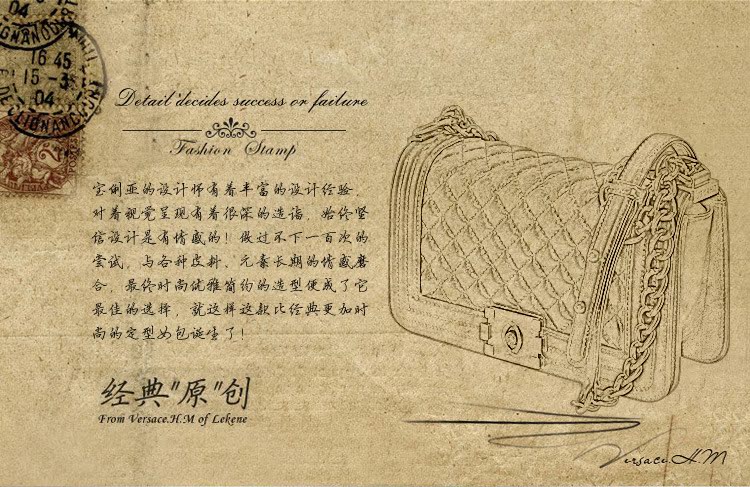 04
16 45
15-3
04
DE CLIGNANCOURT
Detail decides success or failure
Fashion Stamp
宝俐亚的设计师有着丰富的设计经验,
对着视觉呈现有着很深的造诣, 始终坚
信设计是有情感的! 做过不下一百次的
尝试, 与各种皮料、元素长期的情感磨
合, 最终时尚优雅简约的造型便成了它
最佳的选择, 就这样这款比经典更加时
尚的定型女包诞生了!
经典"原"创
From Versace.H.M of Lekene
Versace.H.M